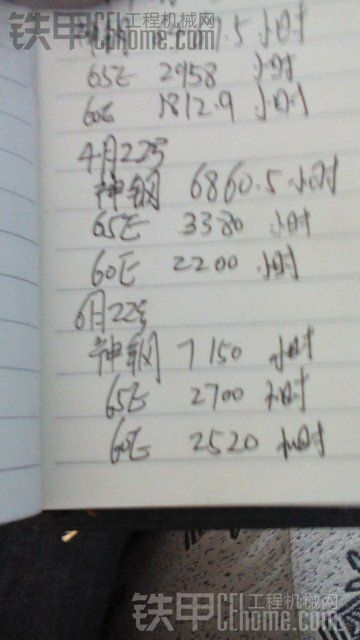 铁甲 工程机械网
CEhome.com
.5 小时
65E 2958 小时
60E 1812.9 小时
4月22号
神钢 6860.5 小时
65E 3380 小时
60E 2200 小时
6月22号
神钢 7150 小时
65E 2700 小时
60E 2520 小时
铁甲 工程机械网
CEhome.com